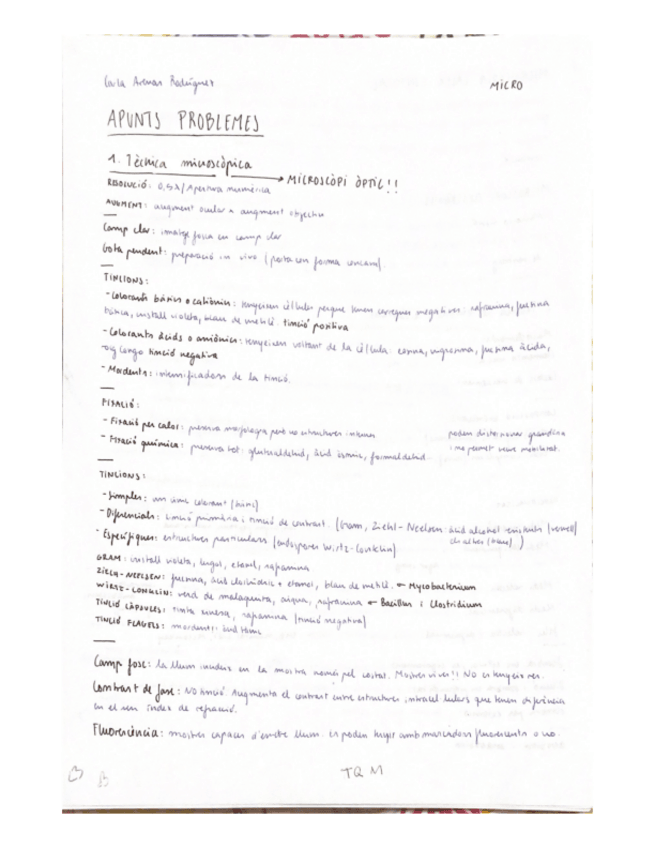 Carla Arenas Rodríguez
MICRO
APUNTS PROBLEMES
1. Tècnica microscòpica → MICROSCÒPI ÒPTIC!!
RESOLUCIÓ: 0,5λ/Apertura numèrica
AUGMENT: augment ocular x augment objectiu
Camp clar: imatge fosca en camp clar
Gota pendent: preparació in vivo (porta amb forma concava).
TINCIONS:
- Colorants bàsics o catiònics: tenyeixen cèl·lules perque tenen carregues negatives: safranina, fucsina
bàsica, cristall violeta, blau de metilè. tinció positiva
- Colorants àcids o aniònics: tenyeixen voltant de la cèl·lula: eosina, nigrosina, fucsina àcida,
roig congo tinció negativa
- Mordents: intensificadors de la tinció.
FIXACIÓ:
- Fixació per calor: preserva morfologia però no estructures internes
- Fixació química: preserva tot: glutaraldehid, àcid òsmic, formaldehid.
poden distorsionar grandària
i no permet veure motilitat.
TINCIONS:
- Simples: un únic colorant (bàsic)
- Diferencials: tinció primària i tinció de contrast. (Gram, Ziehl-Neelsen: àcid alcohol resistents (vermell)
- Específiques: estructures particulars (endospores Wirtz-Conklin)
GRAM: cristall violeta, lugol, etanol, safranina
ZIEHL-NEELSEN: fucsina, àcid clorhídric + etanol, blau de metilè. ← Mycobacterium
WIRTZ-CONKLIN: verd de malaquita, aigua, safranina ← Bacillus i Clostridium
TINCIÓ CÀPSULES: tinta xinesa, safranina (tinció negativa)
TINCIÓ FLAGELS: mordents: àcid tànic
Camp fosc: la llum incideix en la mostra només pel costat. Mostres vives!! NO es tenyeix res.
Contrast de fase: NO tinció. Augmenta el contrast entre estructures intracel·lulars que tenen diferència
en el seu índex de refracció.
Fluorescència: mostres capaces d'emetre llum. Es poden tenyir amb marcadors fluorescents o no.
TQM